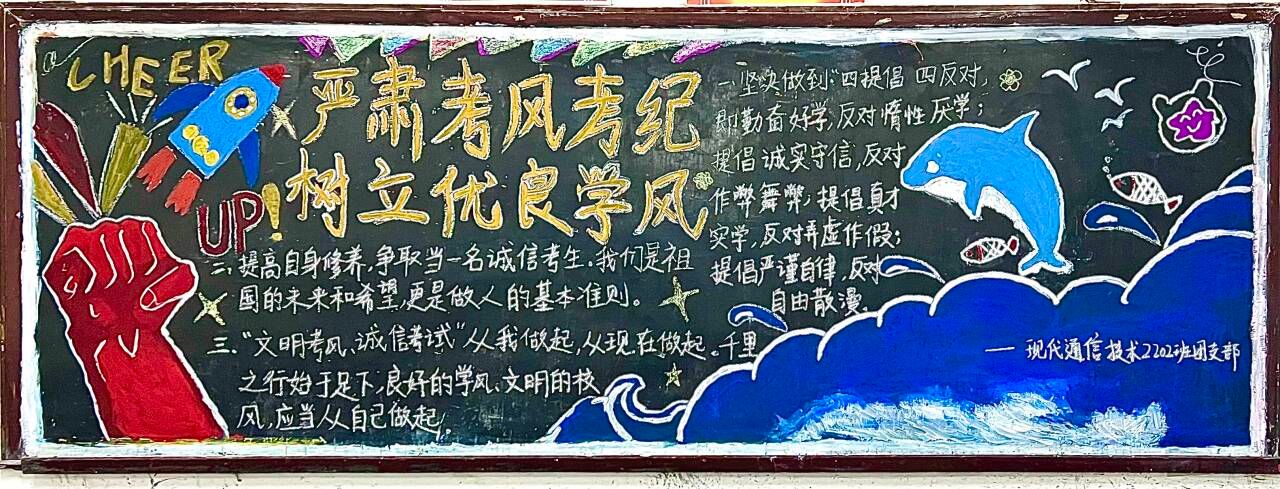 CHEER
UP!
严肃考风考纪
树立优良学风
一.坚决做到“四提倡 四反对,
即勤奋好学,反对惰性厌学;
提倡诚实守信,反对
作弊舞弊,提倡真才
实学,反对弄虚作假;
提倡严谨自律,反对
自由散漫。
二.提高自身修养,争取当一名诚信考生。我们是祖
国的未来和希望,更是做人的基本准则。
三.“文明考风、诚信考试”从我做起,从现在做起。千里
之行始于足下,良好的学风、文明的校
风,应当从自己做起。
——现代通信技术2202班团支部